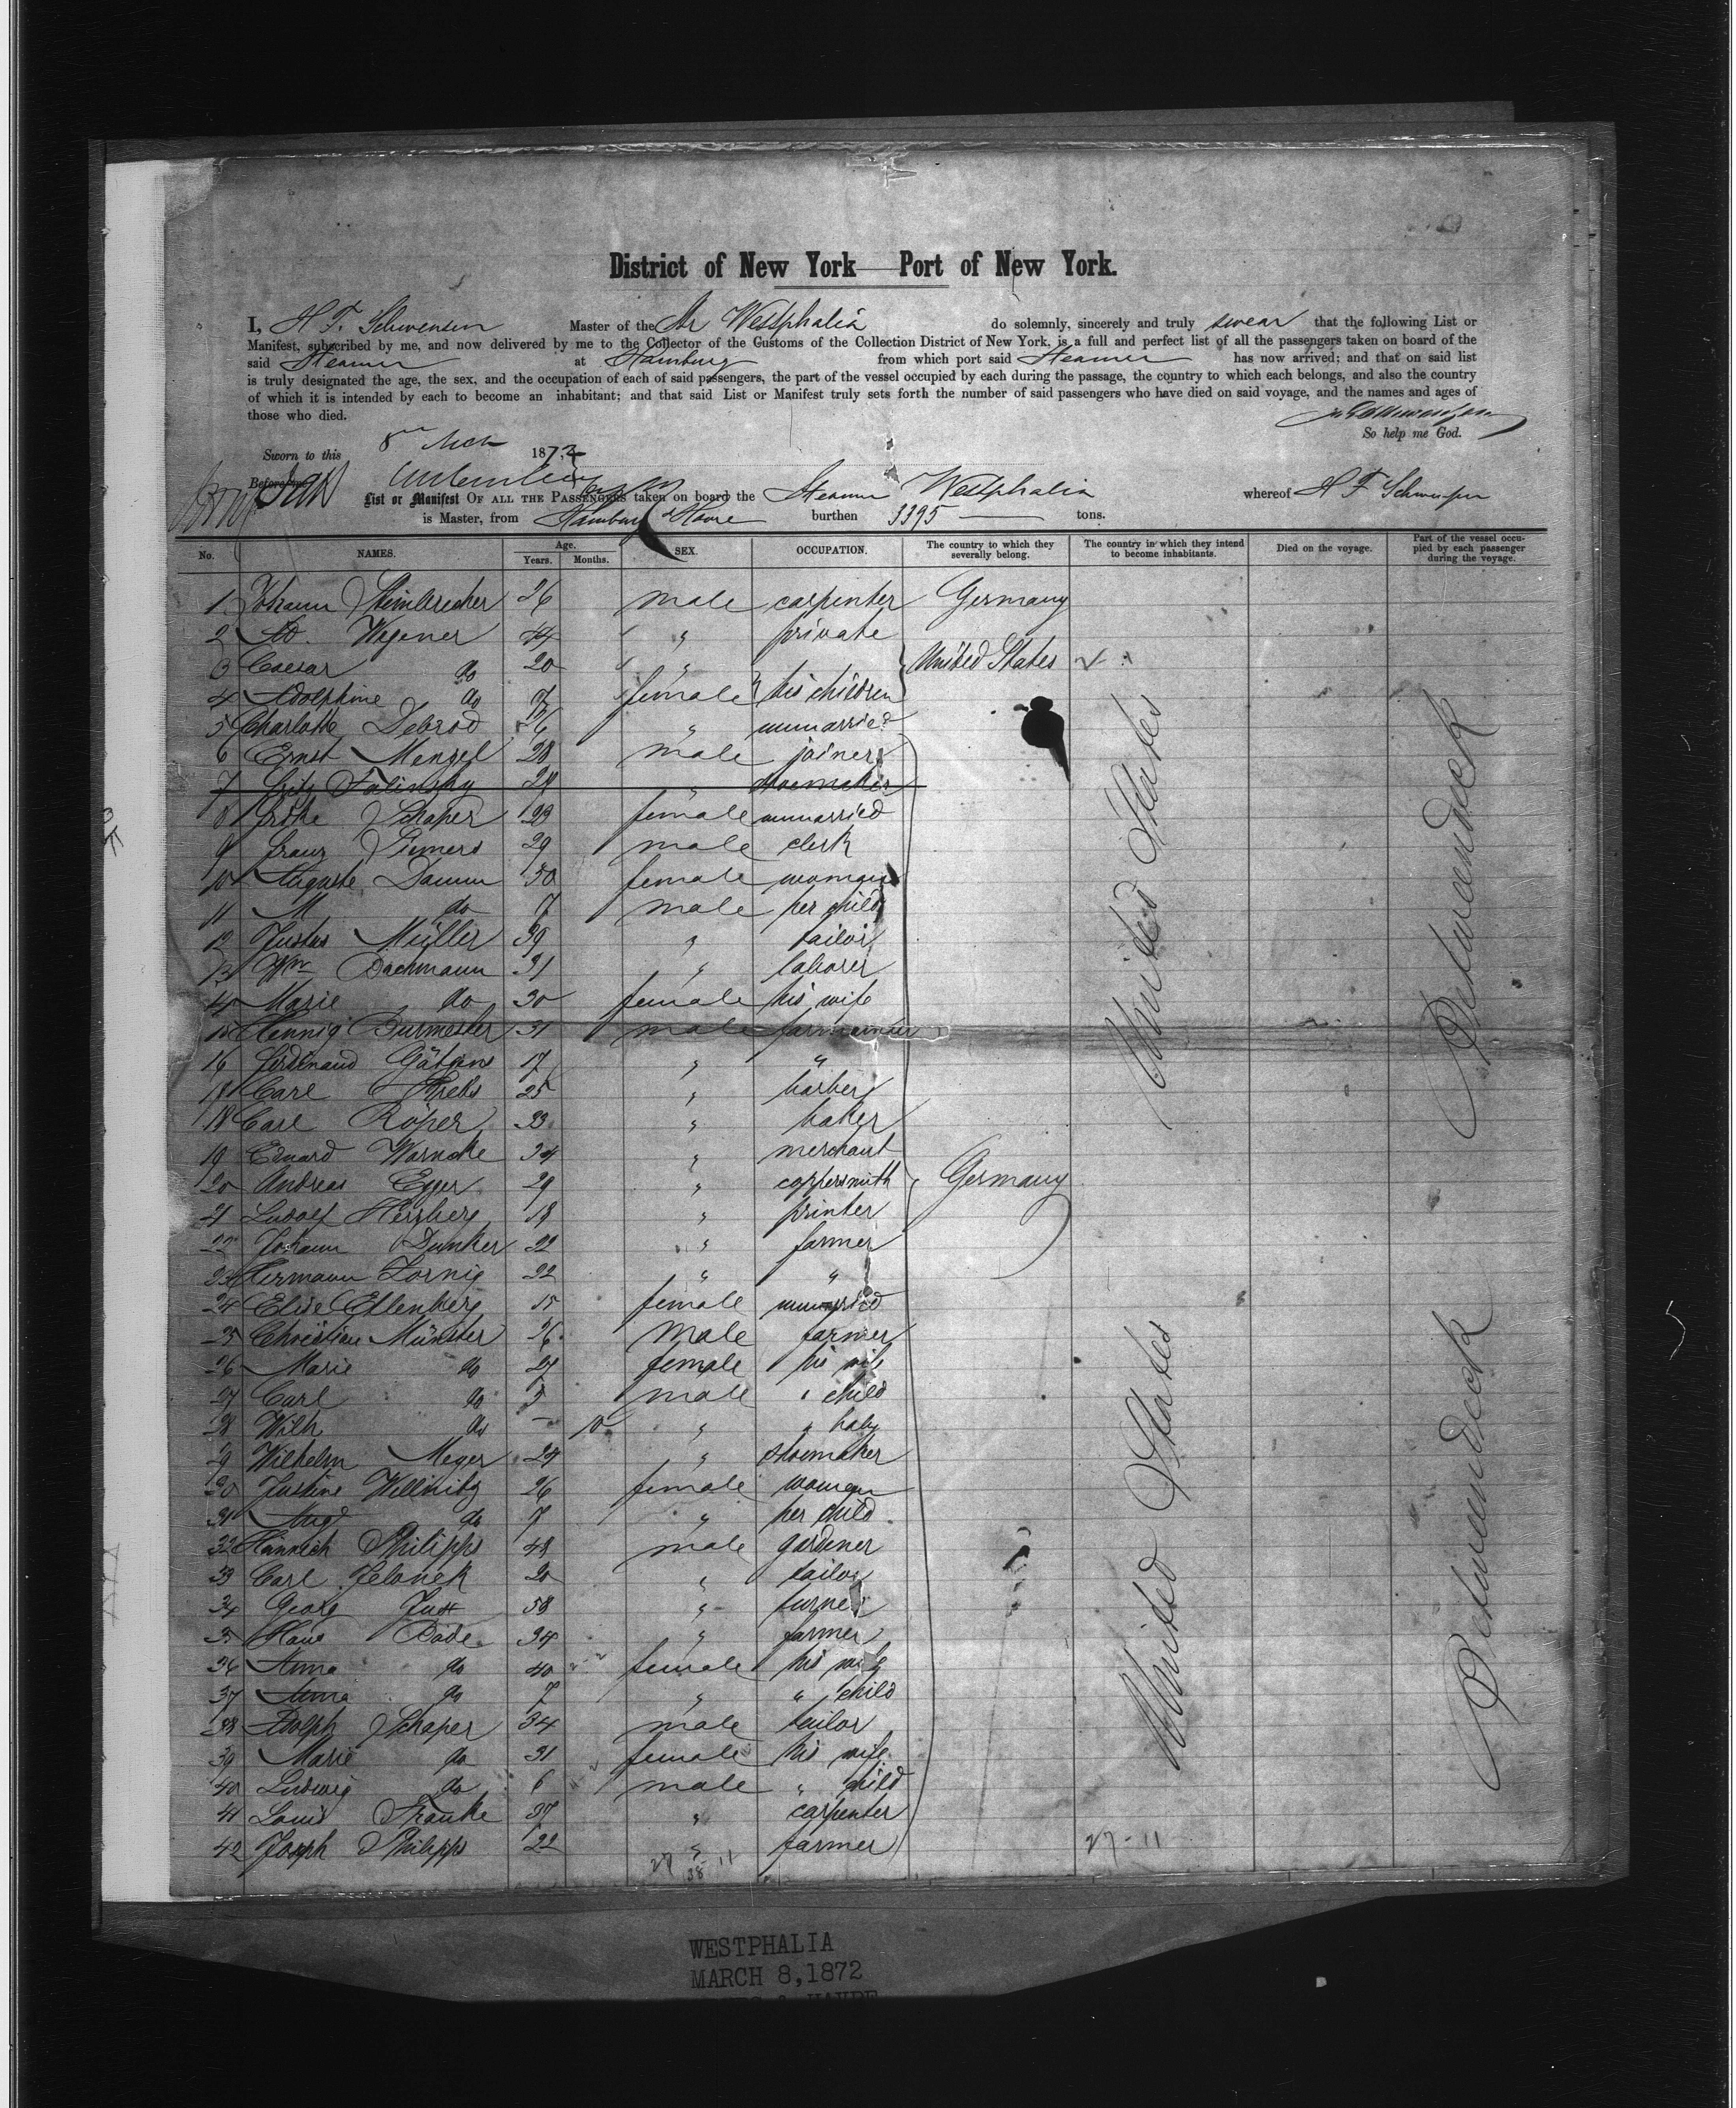 District of New York — Port of New York.
I, H F. Schwensen Master of the Str Westphalia do solemnly, sincerely and truly swear that the following List or
Manifest, subscribed by me, and now delivered by me to the Collector of the Customs of the Collection District of New York, is a full and perfect list of all the passengers taken on board of the
said Steamer at Hamburg from which port said Steamer has now arrived; and that on said list
is truly designated the age, the sex, and the occupation of each of said passengers, the part of the vessel occupied by each during the passage, the country to which each belongs, and also the country
of which it is intended by each to become an inhabitant; and that said List or Manifest truly sets forth the number of said passengers who have died on said voyage, and the names and ages of
those who died.
So help me God.
Sworn to this 8 Mch 1872
Before me
List or Manifest OF ALL THE PASSENGERS taken on board the Steamer Westphalia whereof H F Schwensen
is Master, from Hamburg & Havre burthen 3395 tons.
No. NAMES. Age. Years. Months. SEX. OCCUPATION. The country to which they severally belong. The country in which they intend to become inhabitants. Died on the voyage. Part of the vessel occupied by each passenger during the voyage.
1 Johann Steinbrecher 26 male carpenter Germany
2 Ad. Wegener 44 " private
3 Caesar do 20 " United States
4 Adolphine do female his children
5 Charlotte Debrod unmarried
6 Ernst Mengel 28 male joiner
7 Fritz Falinsky 24 " shoemaker
8 Schaper 23 female unmarried
9 Franz Siemers 29 male clerk
10 Auguste Damm 30 female woman
11 M do 7 male her child
12 Justus Müller 39 " tailor
13 Wm Bachmann 31 " laborer
14 Marie do 30 female his wife
15 Hennig Burmester 31 male
16 Ferdinand Gätgens 17 " "
17 Carl Krebs 25 " barber
18 Carl Röper 23 " baker
19 Eduard Warncke 34 " merchant
20 Andreas Egger 29 " coppersmith Germany
21 Ludolf Herzberg 18 " printer
22 Johann Dunker 22 " farmer
23 Hermann Zornig 22 " "
24 Elise Ellenberg 15 female unmarried
25 Christian Münster 26 male farmer
26 Marie do 27 female his wife
27 Carl do 5 male " child
28 Wilh do — 10 " " baby
29 Wilhelm Meyer 24 " shoemaker
30 Justine Wellnitz 26 female woman
31 Aug do 7 " her child
32 Heinrich Philipps 48 male gardener
33 Carl Jelonek 20 " tailor
34 Georg Just 58 " turner
35 Hans Bade 34 " farmer
36 Anna do 40 female his wife
37 Anna do 7 " " child
38 Adolph Schaper 34 male tailor
39 Marie do 31 female his wife
40 Ludwig do 6 male " child
41 Louis Franke 37 " carpenter
42 Joseph Philipps 22 " farmer
United States
United States
Between deck
Between deck
27 - 11
27 38 11
WESTPHALIA
MARCH 8,1872